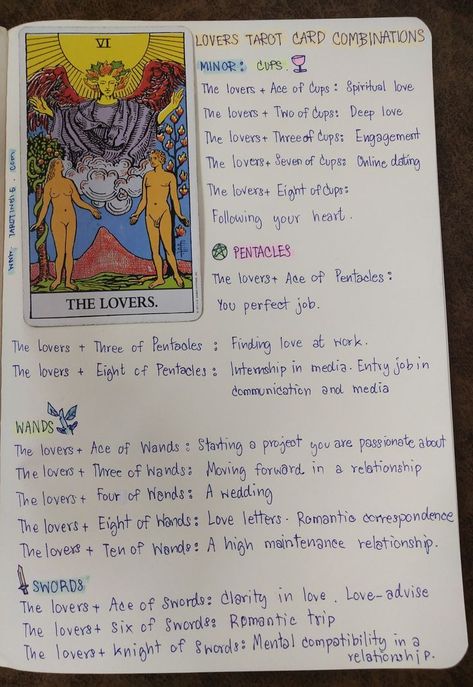 LOVERS TAROT CARD COMBINATIONS
VI
THE LOVERS.
MINOR: CUPS
The lovers + Ace of Cups: Spiritual love
The lovers + Two of Cups: Deep love
The lovers + Three of Cups: Engagement
The lovers + Seven of Cups: Online dating
The lovers + Eight of Cups:
Following your heart.
PENTACLES
The lovers + Ace of Pentacles:
You perfect job.
The lovers + Three of Pentacles: Finding love at work.
The lovers + Eight of Pentacles: Internship in media. Entry job in
communication and media
WANDS
The lovers + Ace of Wands: Starting a project you are passionate about
The lovers + Three of Wands: Moving forward in a relationship
The lovers + Four of Wands: A wedding
The lovers + Eight of Wands: Love letters. Romantic correspondence
The lovers + Ten of Wands: A high maintenance relationship.
SWORDS
The lovers + Ace of Swords: Clarity in love. Love-advise
The lovers + Six of Swords: Romantic trip
The lovers + Knight of Swords: Mental compatibility in a
relationship.